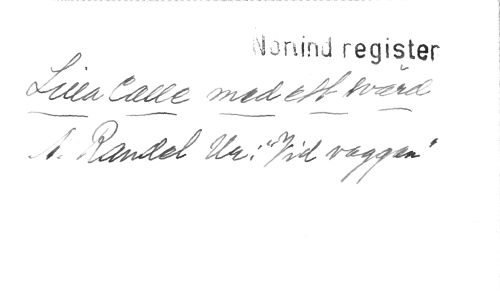 Nomind register
Lilla Calle med ett svärd
A. Randel Ur: "Vid vaggan"